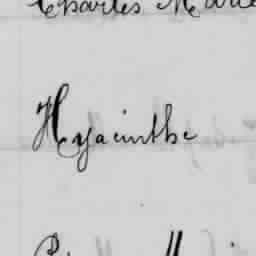 Charles Marie
Hyacinthe